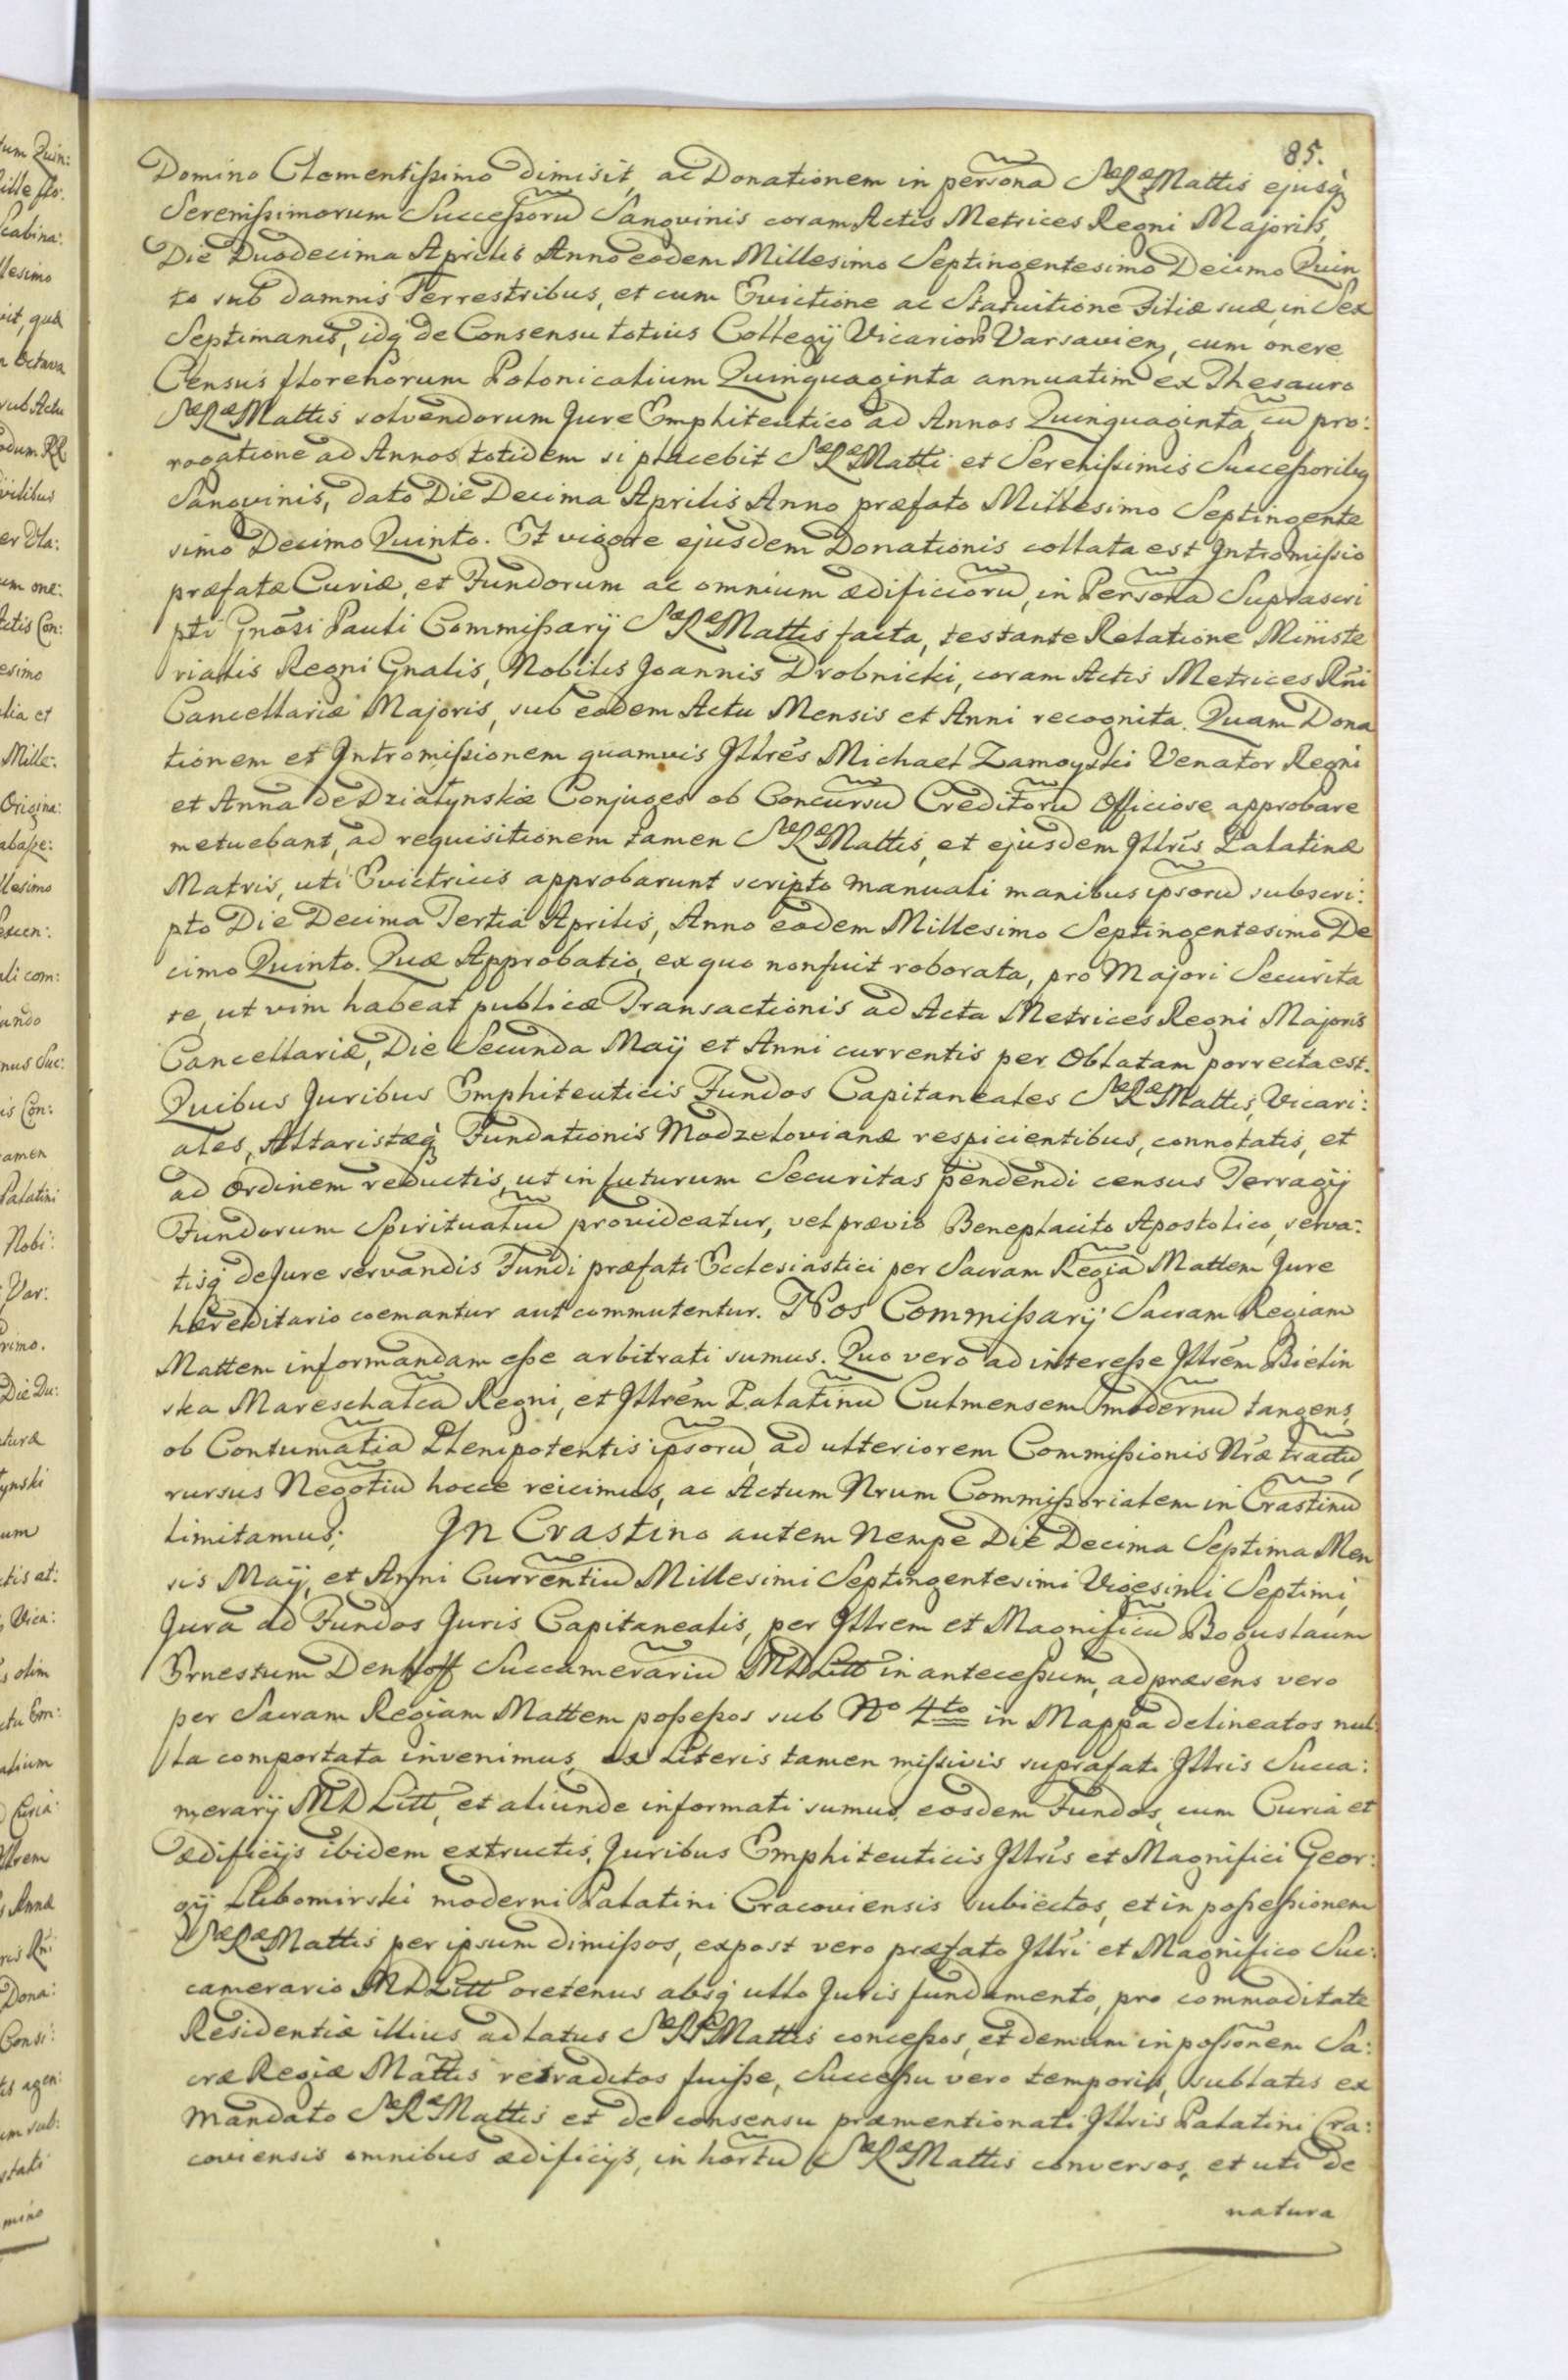 85.
Domino Clementißimo dimisit, ac Donationem in persona͠ SæRæMattis ejusq̀
Serenißimorum Succeßorũ Sangvinis coram Actis Metrices Regni Majoris,
Die Duodecima Aprilis Anno eodem Millesimo Septingentesimo Decimo Quin
to sub damnis Terrestribus, et cum Evictione ac Statuitione Filiæ suæ, in Sex
Septimanis, idq̀ de Consensu totius Collegÿ Vicarior Varsavien, cum onere
Census florenorum Polonicalium Quinquaginta annuatim ex Thesauro
SæRæMattis solvendorum Jure Emphiteutico ad Annos Quinquaginta, cũ pro:
rogatione ad Annos totidem si placebit SæRæMatti et Serenißimis Succeßoribq
Sangvinis, dato Die Decima Aprilis Anno præfato Millesimo Septingente
simo Decimo Quinto. Et vigore ejusdem Donationis collata est Intromißio
præfatæ Curiæ, et Fundorum ac omnium ædificiorũ, in Persona͠ Suprascri
pti Gnősi Pauli Commißarÿ SæRæMattis facta, testante Relatione Miniiste
rialis Regni Gnalis, Nobilis Joannis Drobnicki, coram Actis Metrices Rñi
Cancellariæ Majoris, sub eodem Actu Mensis et Anni recognita. Quam Dona
tionem et Intromißionem quamvis Jllrés Michael Zamoyski Venator Regni
et Anna de Dziatynskie Conjuges ob Concursũ Creditorũ Officiose approbare
metuebant, ad requisitionem tamen SæRæMattis, et ejusdem Jllrı́s Palatinæ
Matris, uti Evictricis approbarunt scripto manuali manibus ipsorũ subscri:
pto Die Decima Tertia Aprilis, Anno eodem Millesimo Septingentesimo De
cimo Quinto. Quæ Approbatio, ex quo non fuit roborata, pro Majori Securita
te, ut vim habeat publicæ Transactionis ad Acta Metrices Regni Majoris
Cancellariæ, Die Secunda Maÿ et Anni currentis per Oblatam porrecta est.
Quibus Juribus Emphiteuticis Fundos Capitaneales SæRæMattis, Vicari:
ales, Altaristæq̀ Fundationis Modzelovianæ respicientibus, connotatis, et
ad ordinem reductis, ut in futurum Securitas pendendi census Terragÿ
Fundorum Spiritualiũ provideatur, vel prævio Beneplacito Apostolico, serva:
tisq̀ de Jure servandis Fundi præfati Ecclesiastici per Sacram Regia͠ Mattem Jure
hæreditario coemantur aut commutentur. Nos Commißarÿ Sacram Regiam
Mattem informandam eße arbitrati sumus. Quo vero ad intereße Jllrém Bielin
ska Mareschalca͠ Regni, et Jllrém Palatinũ Culmensem modernũ tangens,
ob Contumatia͠ Plenipotentis ipsorũ, ad ulteriorem Commißionis Nræ tractũ,
rursus Negotiũ hocce reicimus, ac Actum Nrum Commißorialem in Crastinũ
limitamus; In Crastino autem Nempe Die Decima Septima Men
sis Maÿ, et Anni Currentiũ Millesimi Septingentesimi Vigesimi Septimi,
Jura ad Fundos Juris Capitanealis, per Jllrem et Magnificũ Boguslaum
Ernestum Denhoff Succamerariũ MDLitt in anteceßum, ad præsens vero
per Sacram Regiam Mattem poßeßos sub No 4to in Mappa delineatos nul
la comportata invenimus, ex Literis tamen mißivis supræfati Jllris Succa:
merarÿ MDLitt, et aliunde informati sumus, eosdem Fundos, cum Curia et
ædificÿs ibidem extructis, Juribus Emphiteuticis Jllrı́s et Magnifici Geor:
gÿ Lubomirski moderni Palatini Cracoviensis subiectos, et in poßeßionem
SæRæMattis per ipsum dimißos, expost vero præfato Jllrı́ et Magnifico Suc:
camerario MDLitt oretenus absq̀ ullo Juris fundamento, pro commoditate
Residentiæ illius ad latus SæRæMattis conceßos, et demum in poßonem Sa:
cræ Regiæ Mattis retraditos fuiße, Succeßu vero temporis, sublatis ex
mandato SæRæMattis et de consensu præmentionati Jllris Palatini Cra:
coviensis omnibus ædificÿs, in hortũ SæRæMattis conversos, et uti de
natura